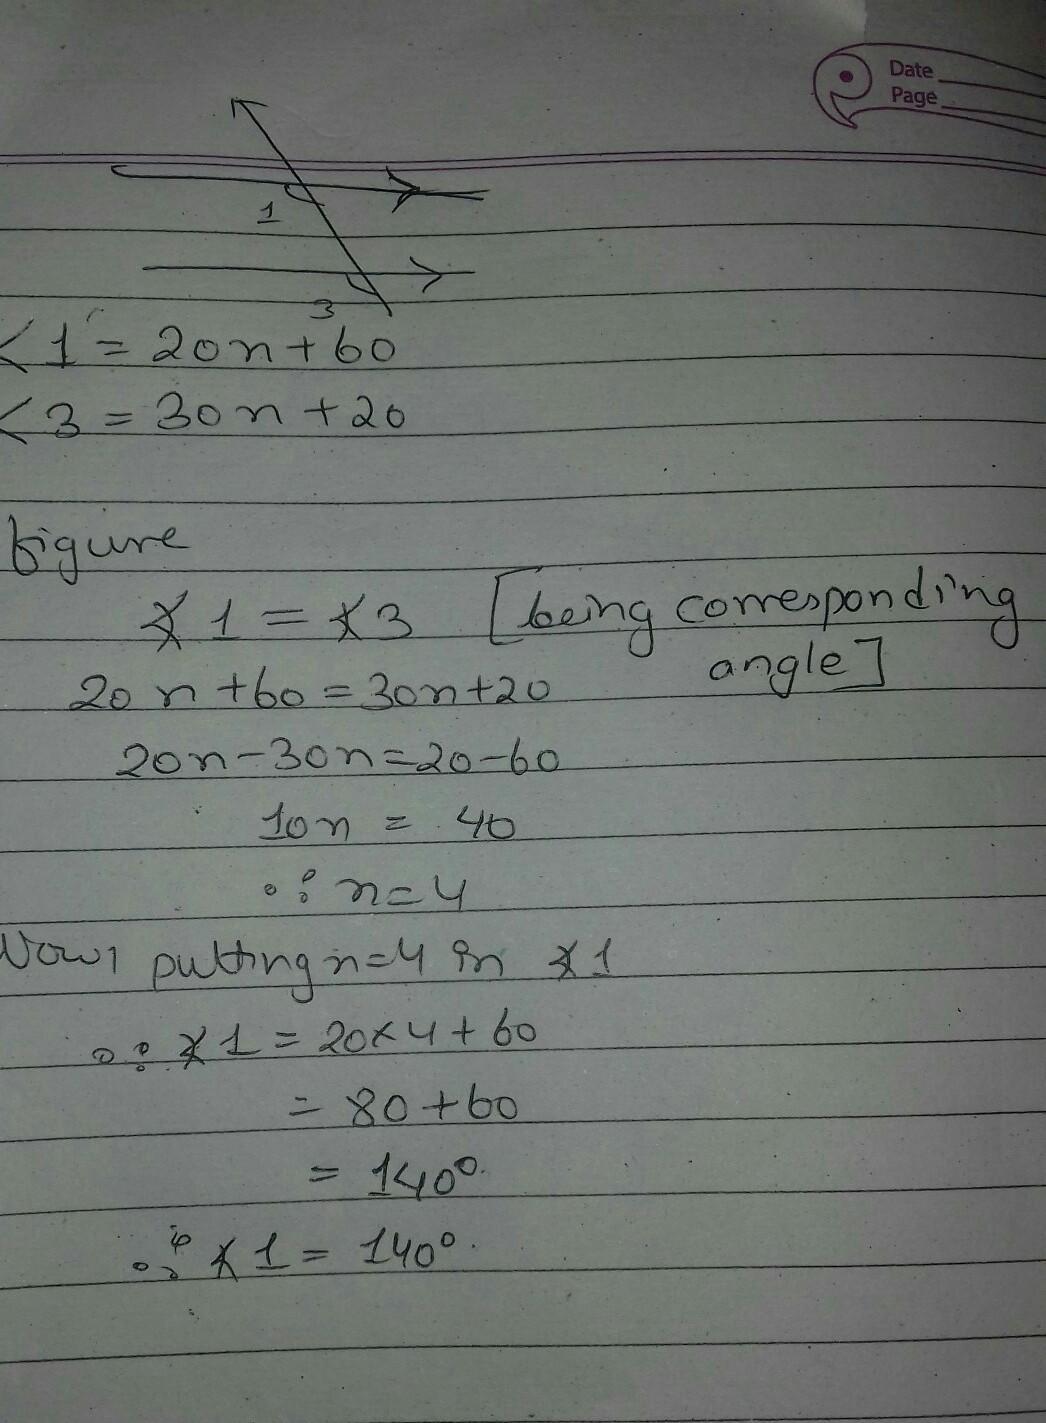 Date
Page
1
3
<1 = 20n+60
<3 = 30n+20
figure
∡1 = ∡3 [being corresponding
angle]
20n+60=30n+20
20n-30n=20-60
10n = 40
∴ n=4
Now, putting n=4 in ∡1
∴ ∡1 = 20×4+60
= 80+60
= 140°
∴ ∡1 = 140°.